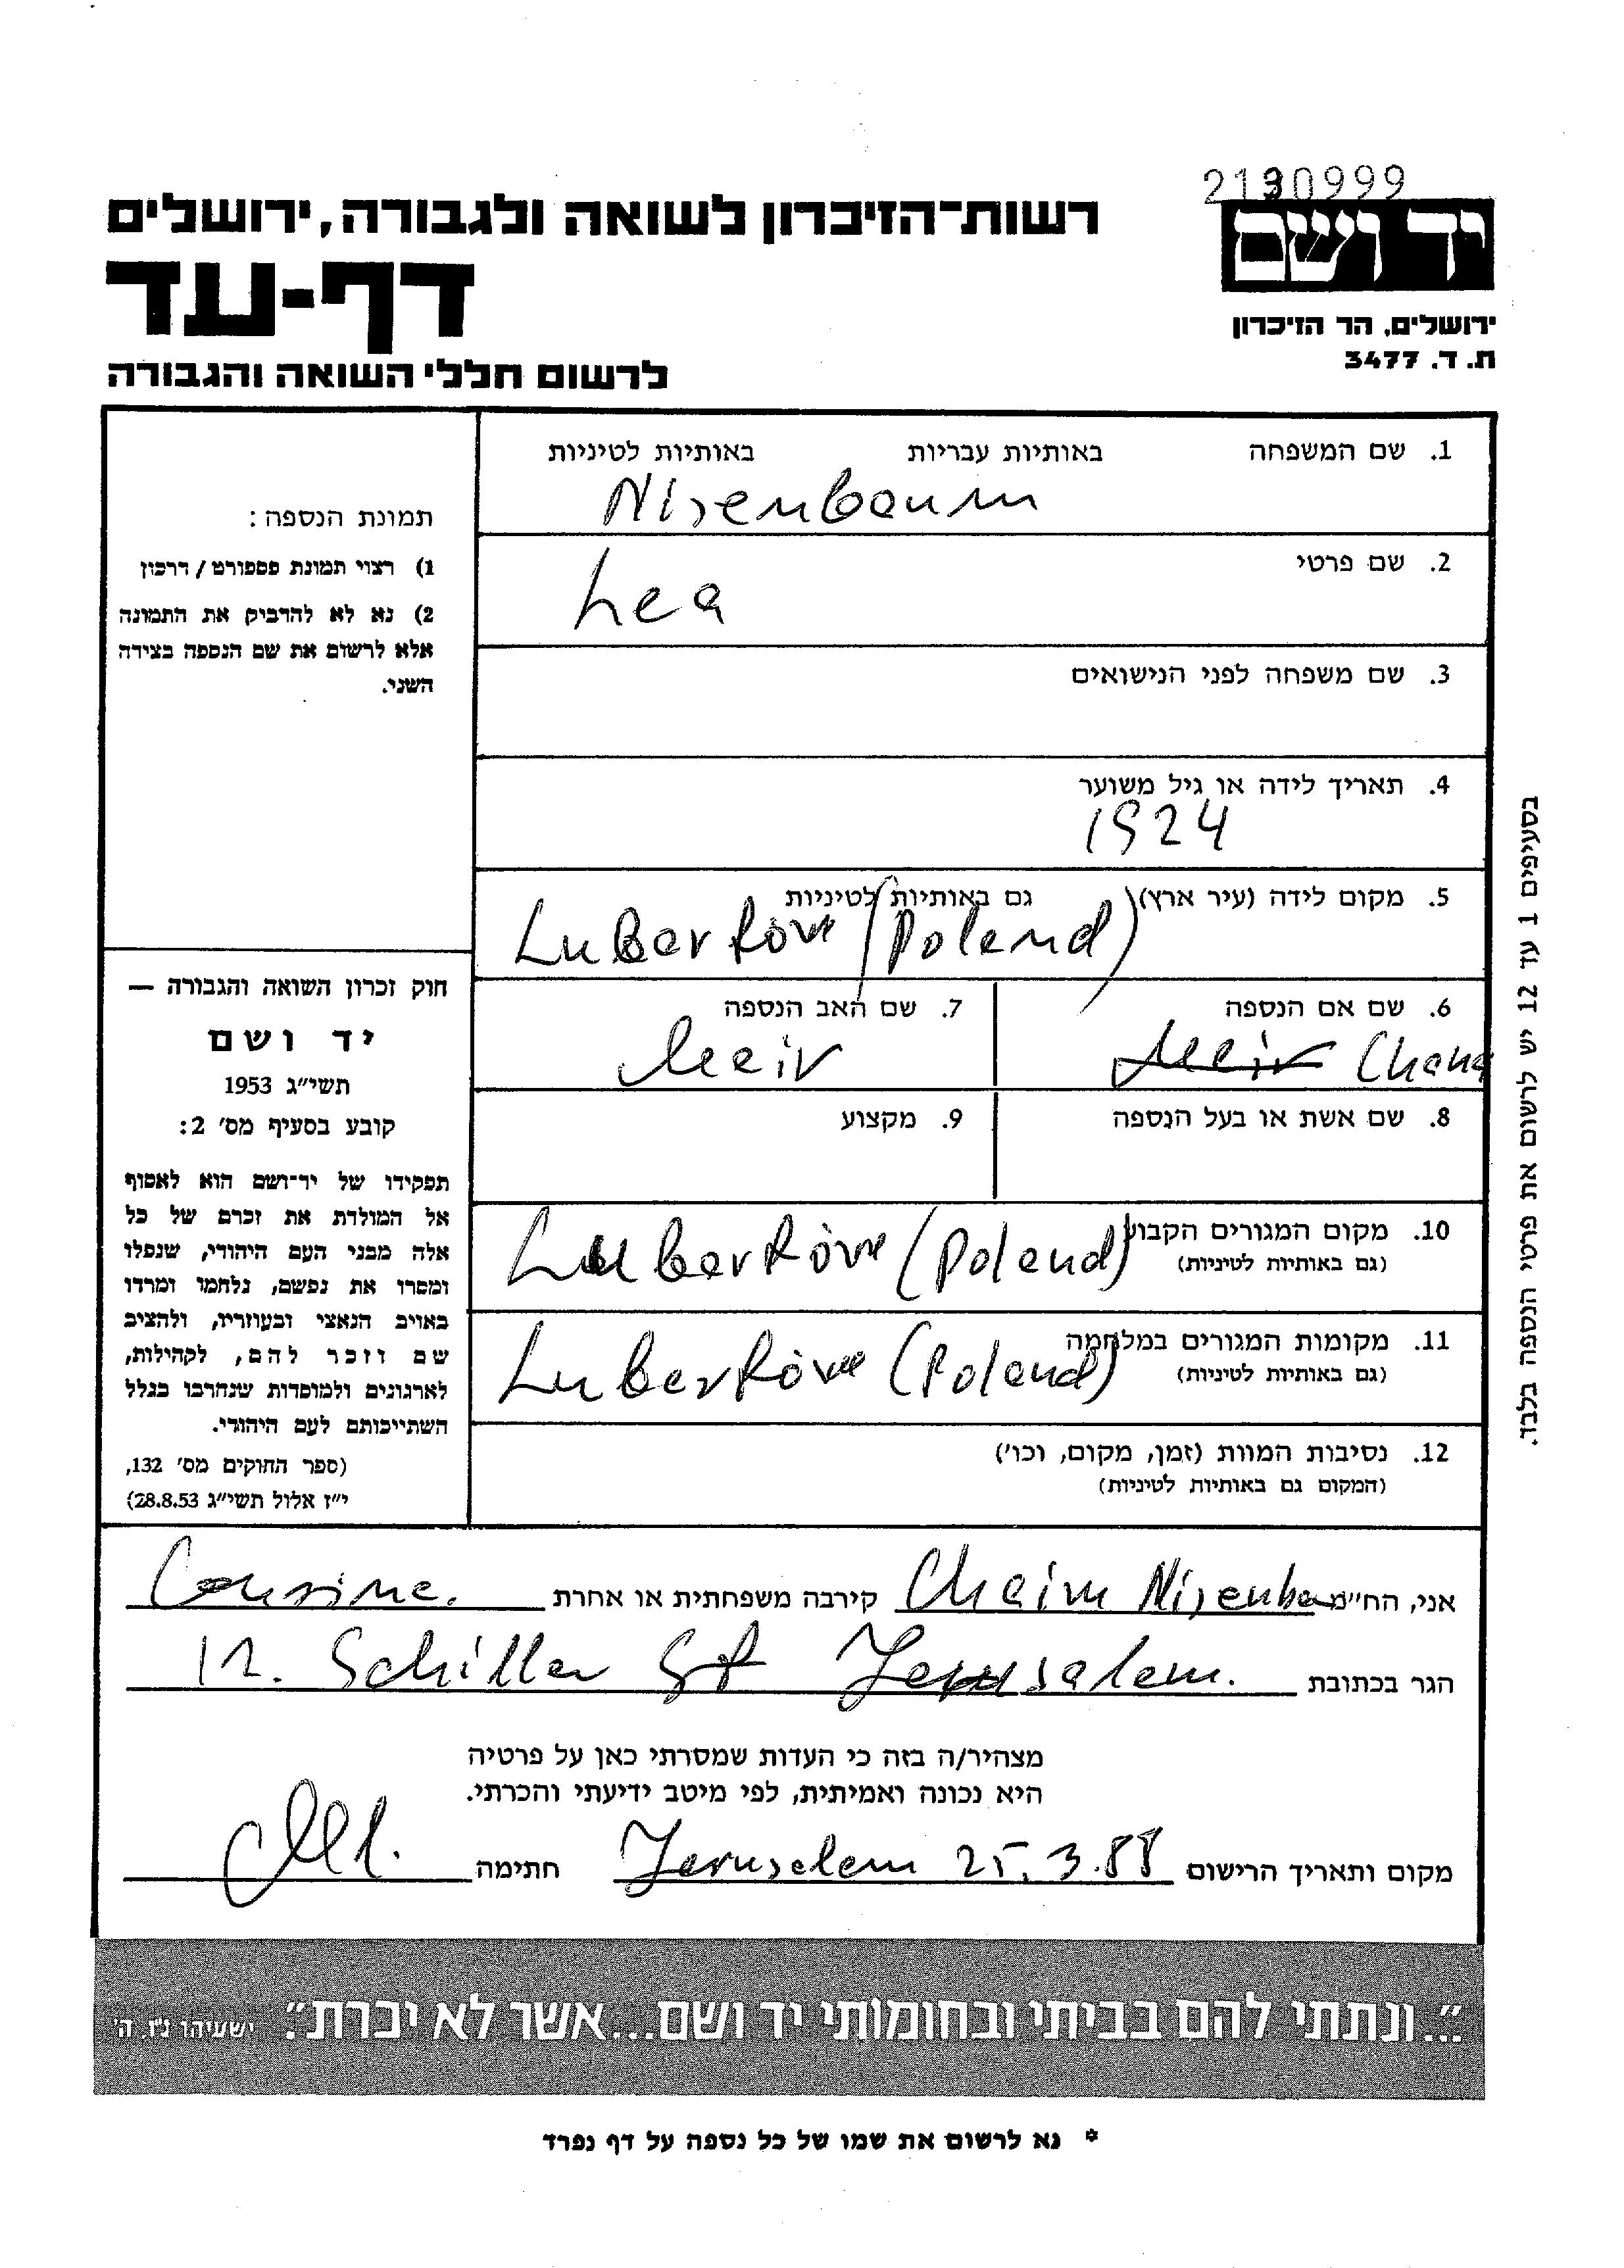 2130999
יד ושם
ירושלים, הר הזיכרון
ת. ד. 3477
רשות־הזיכרון לשואה ולגבורה, ירושלים
דף-עד
לרשום חללי השואה והגבורה
1. שם המשפחה באותיות עבריות באותיות לטיניות
Nisenbaum
2. שם פרטי
Lea
3. שם משפחה לפני הנישואים
4. תאריך לידה או גיל משוער
1924
5. מקום לידה (עיר ארץ) גם באותיות לטיניות
Lubartów (Poland)
6. שם אם הנספה
Meir Chana
7. שם האב הנספה
Meir
8. שם אשת או בעל הנספה
9. מקצוע
10. מקום המגורים הקבוע
(גם באותיות לטיניות)
Lubartów (Poland)
11. מקומות המגורים במלחמה
(גם באותיות לטיניות)
Lubartów (Poland)
12. נסיבות המוות (זמן, מקום, וכו')
(המקום גם באותיות לטיניות)
תמונת הנספה:
1) רצוי תמונת פספורט / דרכון
2) נא לא להדביק את התמונה
אלא לרשום את שם הנספה בצידה
השני.
חוק זכרון השואה והגבורה —
יד ושם
תשי״ג 1953
קובע בסעיף מס׳ 2:
תפקידו של יד־ושם הוא לאסוף
אל המולדת את זכרם של כל
אלה מבני העם היהודי, שנפלו
ומסרו את נפשם, נלחמו ומרדו
באויב הנאצי ובעוזריו, ולהציב
שם וזכר להם, לקהילות,
לארגונים ולמוסדות שנחרבו בגלל
השתייכותם לעם היהודי.
(ספר החוקים מס׳ 132,
י״ז אלול תשי״ג 28.8.53)
בסעיפים 1 עד 12 יש לרשום את פרטי הנספה בלבד.
אני, החי״מ Chaim Nisenba קירבה משפחתית או אחרת Cousine.
הגר בכתובת 12. Schiller St Jerusalem.
מצהיר/ה בזה כי העדות שמסרתי כאן על פרטיה
היא נכונה ואמיתית, לפי מיטב ידיעתי והכרתי.
מקום ותאריך הרישום Jerusalem 25.3.88 חתימה
״...ונתתי להם בביתי ובחומותי יד ושם...אשר לא יכרת״. ישעיהו נ״ו, ה׳
* נא לרשום את שמו של כל נספה על דף נפרד